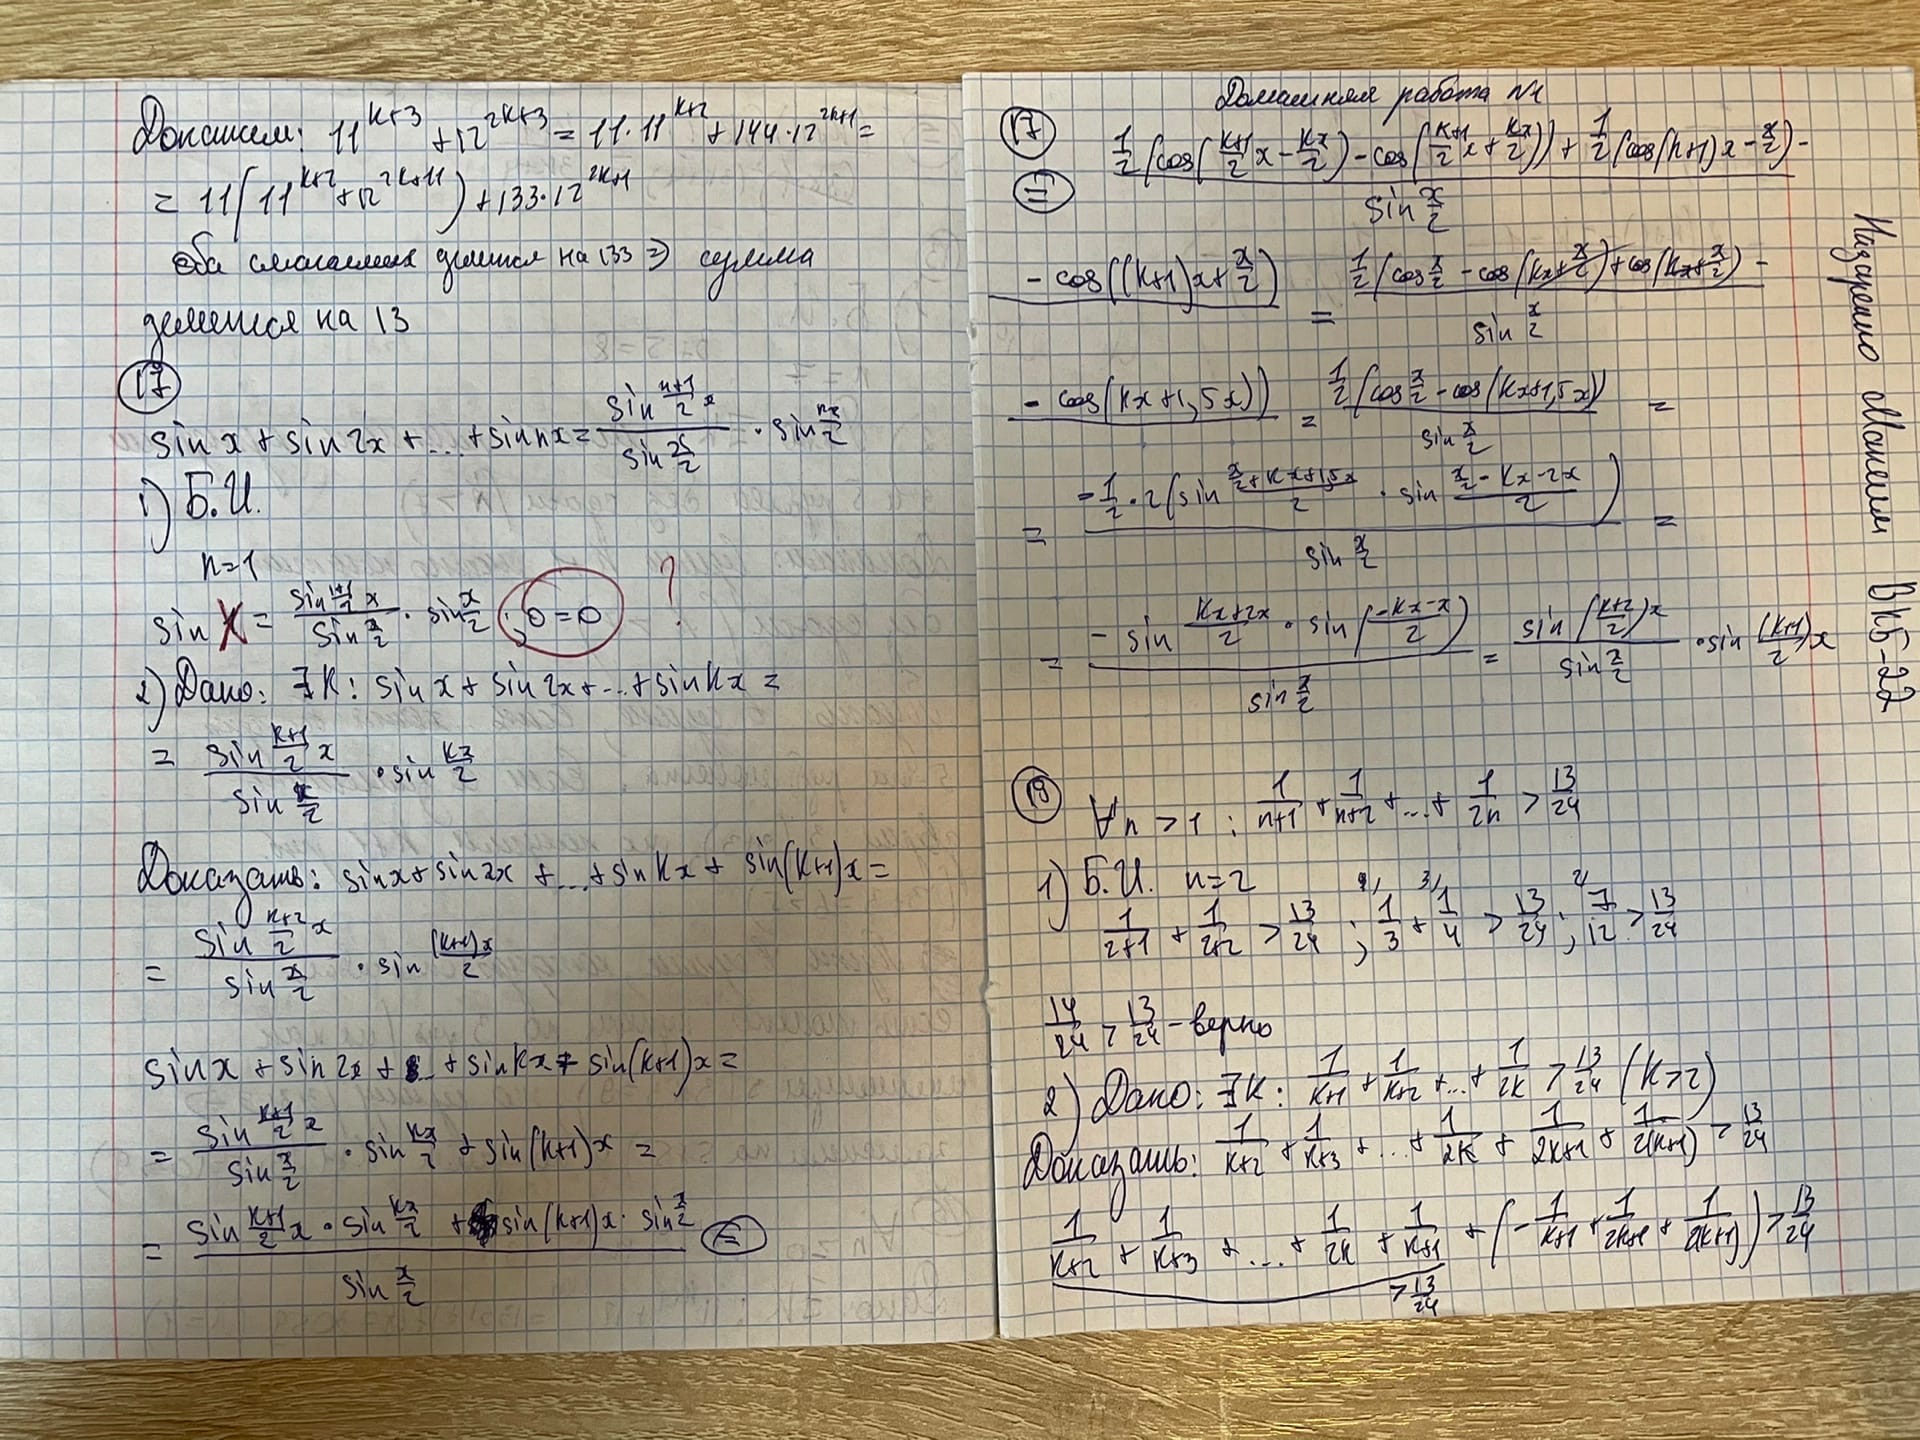 Докажем: 11^{k+3} + 12^{2k+3} = 11·11^{k+2} + 144·12^{2k+1} =
= 11(11^{k+2} + 12^{2k+1}) + 133·12^{2k+1}
оба слагаемых делятся на 133 ⇒ сумма
делится на 13
17
sin x + sin 2x + ... + sin nx = \frac{sin \frac{n+1}{2} x}{sin \frac{x}{2}} · sin \frac{nx}{2}
1) Б.И.
n=1
sin x = \frac{sin \frac{1+1}{2} x}{sin \frac{x}{2}} · sin \frac{x}{2} ; 0 = 0 ?
2) Дано: ∃k: sin x + sin 2x + ... + sin kx =
= \frac{sin \frac{k+1}{2} x}{sin \frac{x}{2}} · sin \frac{kx}{2}
Доказать: sin x + sin 2x + ... + sin kx + sin(k+1)x =
= \frac{sin \frac{k+2}{2} x}{sin \frac{x}{2}} · sin \frac{(k+1)x}{2}
sin x + sin 2x + ... + sin kx + sin(k+1)x =
= \frac{sin \frac{k+1}{2} x}{sin \frac{x}{2}} · sin \frac{kx}{2} + sin(k+1)x =
= \frac{sin \frac{k+1}{2} x · sin \frac{kx}{2} + sin(k+1)x · sin \frac{x}{2}}{sin \frac{x}{2}} =
Домашняя работа №1
17
= \frac{\frac{1}{2}(cos(\frac{k+1}{2}x - \frac{kx}{2}) - cos(\frac{k+1}{2}x + \frac{kx}{2})) + \frac{1}{2}(cos(k+1)x - \frac{x}{2}) -}{sin \frac{x}{2}}
\frac{- cos((k+1)x + \frac{x}{2})}{} = \frac{\frac{1}{2}(cos \frac{x}{2} - cos(kx + \frac{x}{2}) + cos(kx + \frac{x}{2}) -}{sin \frac{x}{2}}
\frac{- cos(kx + 1,5x))}{} = \frac{\frac{1}{2}(cos \frac{x}{2} - cos(kx + 1,5x))}{sin \frac{x}{2}} =
= \frac{-\frac{1}{2} · 2(sin \frac{\frac{x}{2} + kx + 1,5x}{2} · sin \frac{\frac{x}{2} - kx - 2x}{2})}{sin \frac{x}{2}} =
= \frac{- sin \frac{kx+2x}{2} · sin(\frac{-kx-x}{2})}{sin \frac{x}{2}} = \frac{sin(\frac{k+2}{2})x}{sin \frac{x}{2}} · sin \frac{(k+1)}{2} x
18
∀n > 1 : \frac{1}{n+1} + \frac{1}{n+2} + ... + \frac{1}{2n} > \frac{13}{24}
1) Б.И. n=2
\frac{1}{2+1} + \frac{1}{2+2} > \frac{13}{24} ; \frac{1}{3} + \frac{1}{4} > \frac{13}{24} ; \frac{7}{12} > \frac{13}{24}
\frac{14}{24} > \frac{13}{24} - верно
2) Дано: ∃k: \frac{1}{k+1} + \frac{1}{k+2} + ... + \frac{1}{2k} > \frac{13}{24} (k>2)
Доказать: \frac{1}{k+2} + \frac{1}{k+3} + ... + \frac{1}{2k} + \frac{1}{2k+1} + \frac{1}{2(k+1)} > \frac{13}{24}
\frac{1}{k+2} + \frac{1}{k+3} + ... + \frac{1}{2k} + \frac{1}{k+1} + (-\frac{1}{k+1} + \frac{1}{2k+1} + \frac{1}{2(k+1)}) > \frac{13}{24}
> \frac{13}{24}
ВКБ-22